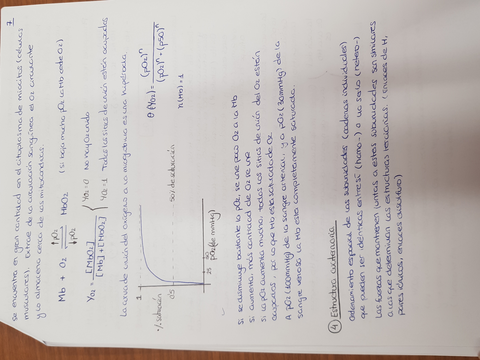 7
se encuentra a gran cantidad en el citoplasma de miocitos (células
musculares). Extrae de la circulación sanguínea el O2 circulante
y lo almacena cerca de las mitocondrias.
Mb + O2 ⇌ MbO2 (a baja mucho pO2 la Mb cede O2)
↑pO2
↓pO2
YO2 = [MbO2] / [Mb] + [MbO2]
YO2 = 0 No hay unido
YO2 = 1 Todos los sitios de unión están ocupados
La curva de unión del oxígeno a la mioglobina es una hipérbola
% saturación
1
0.5
50% de saturación
25 50
pO2 (mmHg)
θ (YO2) = (pO2)^n / (pO2)^n + (p50)^n
n (Mb) = 1
Si disminuye bastante la pO2, se une poco O2 a la Mb
Si aumenta, más cantidad de O2 se une
Si la pO2 aumenta mucho, todos los sitios de unión del O2 están
ocupados, por lo que Mb está saturada de O2.
A pO2 (100mmHg) de la sangre arterial, y a pO2 (30mmHg) de la
sangre venosa la Mb está completamente saturada.
④ Estructura cuaternaria
Ordenamiento espacial de las subunidades (cadenas individuales)
que pueden ser idénticas entre sí (homo-) o no serlo (hetero-)
Las fuerzas que mantienen juntas a estas subunidades son similares
a las que determinan las estructuras terciarias. (enlaces de H,
pares iónicos, enlaces disulfuro)